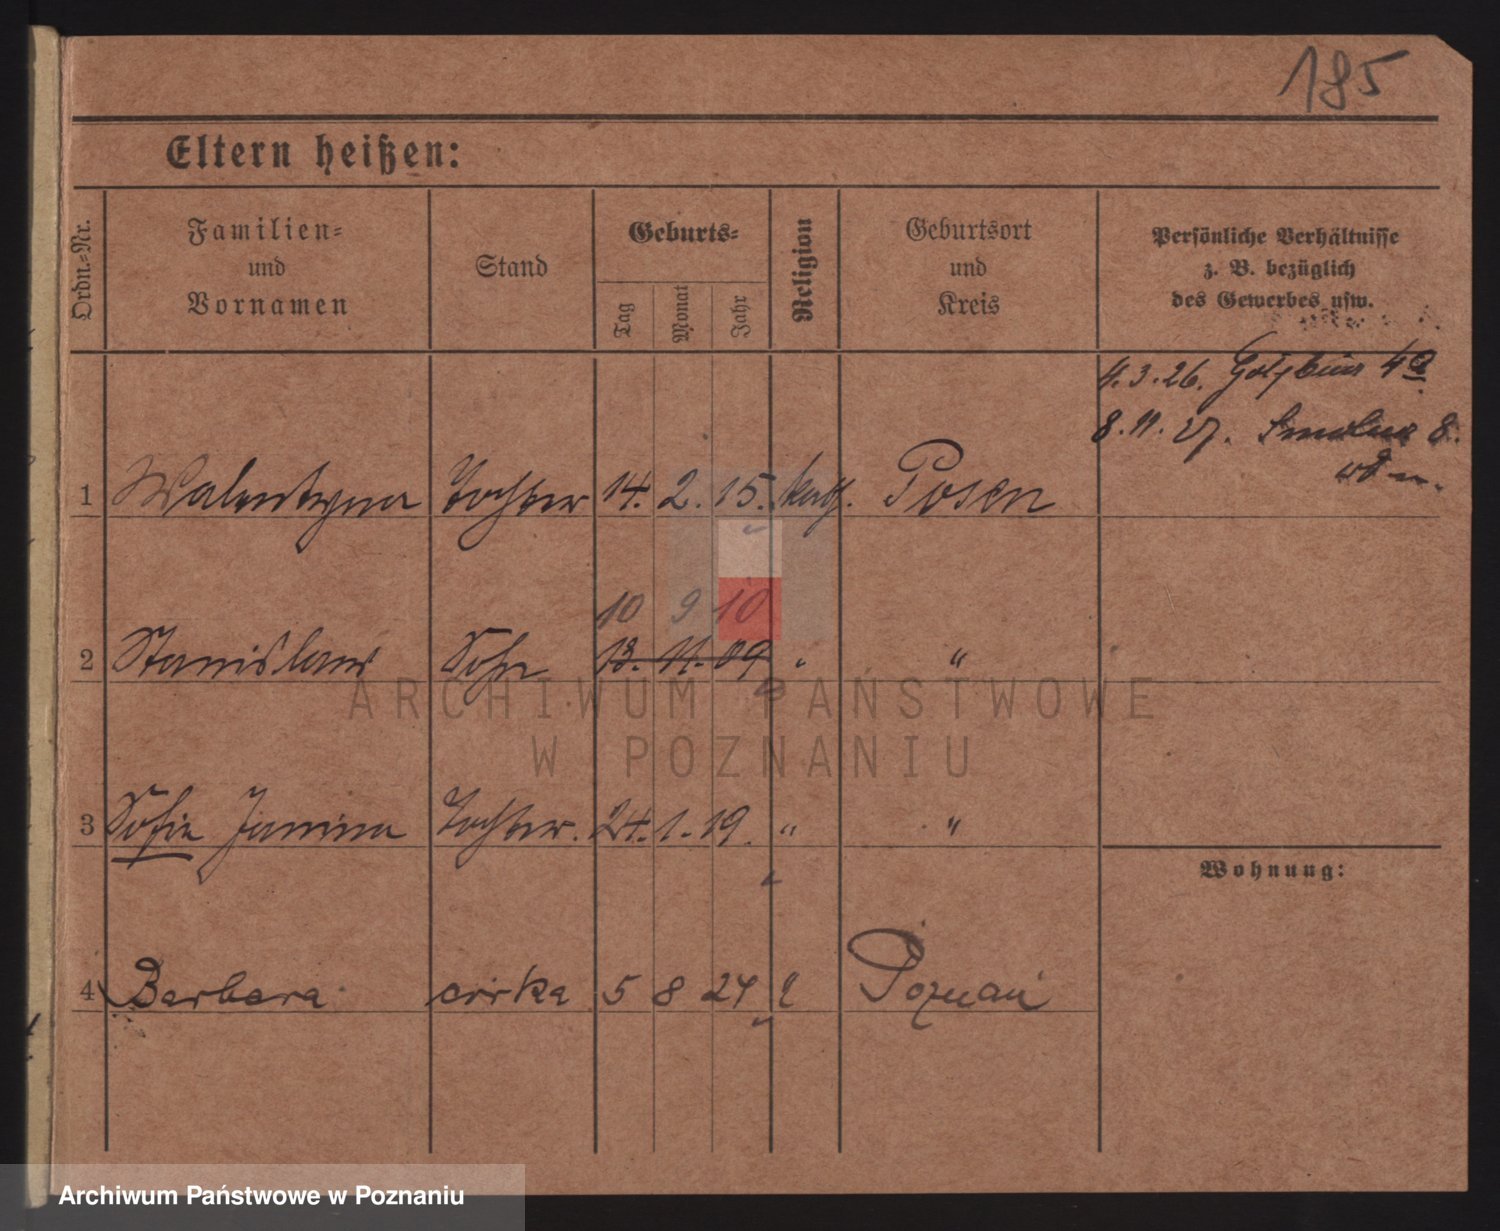 185
Eltern heißen:
Ordn.=Nr.
Familien=
und
Vornamen
Stand
Geburts=
Tag
Monat
Jahr
Religion
Geburtsort
und
Kreis
Persönliche Verhältnisse
z. B. bezüglich
des Gewerbes usw.
4.3.26. 4a
8.11.27. 8.
1 Walentyna Tochter 14. 2. 15. kath. Posen
10 9 10
2 Stanislaw Sohn 13. 11. 09 " "
ARCHIWUM PAŃSTWOWE
W POZNANIU
3 Sofie Janina Tochter. 24. 1. 19. " "
Wohnung:
4 Barbara córka 5 8 24 " Poznań
Archiwum Państwowe w Poznaniu